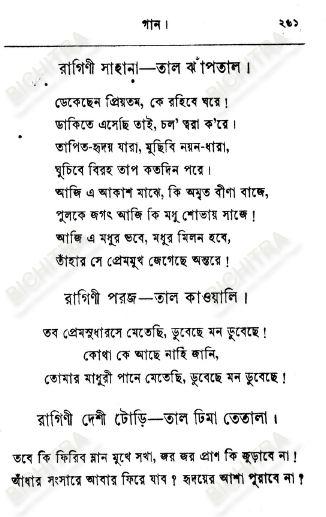 গান।
২৬১
রাগিণী সাহানা—তাল ঝাঁপতাল।
ডেকেছেন প্রিয়তম, কে রহিবে ঘরে!
ডাকিতে এসেছি তাই, চল' ত্বরা ক'রে।
তাপিত-হৃদয় যারা, মুছিবি নয়ন-ধারা,
ঘুচিবে বিরহ তাপ কতদিন পরে।
আজি এ আকাশ মাঝে, কি অমৃত বীণা বাজে,
পুলকে জগৎ আজি কি মধু শোভায় সাজে!
আজি এ মধুর ভবে, মধুর মিলন হবে,
তাঁহার সে প্রেমমুখ জেগেছে অন্তরে!
রাগিণী পরজ—তাল কাওয়ালি।
তব প্রেমসুধারসে মেতেছি, ডুবেছে মন ডুবেছে!
কোথা কে আছে নাহি জানি,
তোমার মাধুরী পানে মেতেছি, ডুবেছে মন ডুবেছে!
রাগিণী দেশী টোড়ি—তাল ঢিমা তেতালা।
তবে কি ফিরিব ম্লান মুখে সখা, জর জর প্রাণ কি জুড়াবে না!
আঁধার সংসারে আবার ফিরে যাব? হৃদয়ের আশা পূরাবে না?
BICHITRA
BICHITRA
BICHITRA
BICHITRA
BICHITRA
BICHITRA